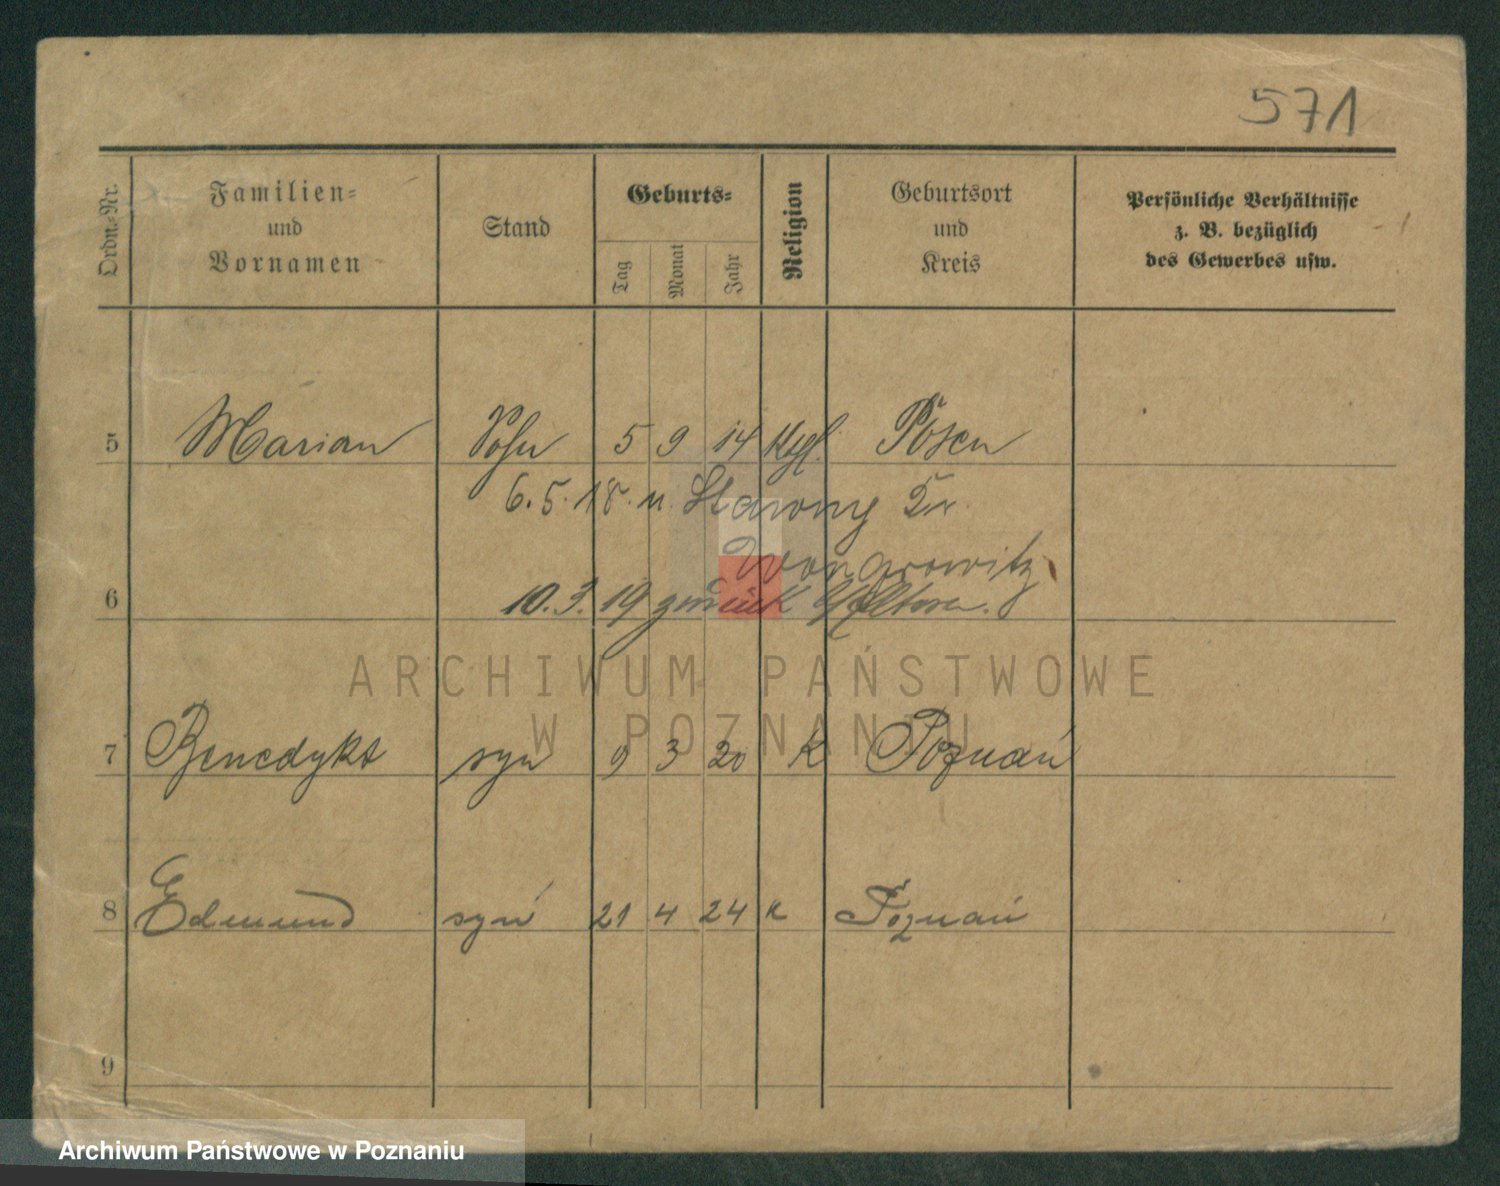 571
Ordn.-Nr.
Familien-
und
Vornamen
Stand
Geburts-
Tag
Monat
Jahr
Religion
Geburtsort
und
Kreis
Persönliche Verhältnisse
z. B. bezüglich
des Gewerbes usw.
5 Marian Sohn 5 9 14 Kth. Posen
6.5.18. n. Kr.
Wongrowitz
6 10.3.19 zurück Eltern.
ARCHIWUM PAŃSTWOWE
W POZNANIU
7 Benedykt syn 9 3 20 K Poznań
8 Edmund syn 21 4 24 K Poznań
9
Archiwum Państwowe w Poznaniu